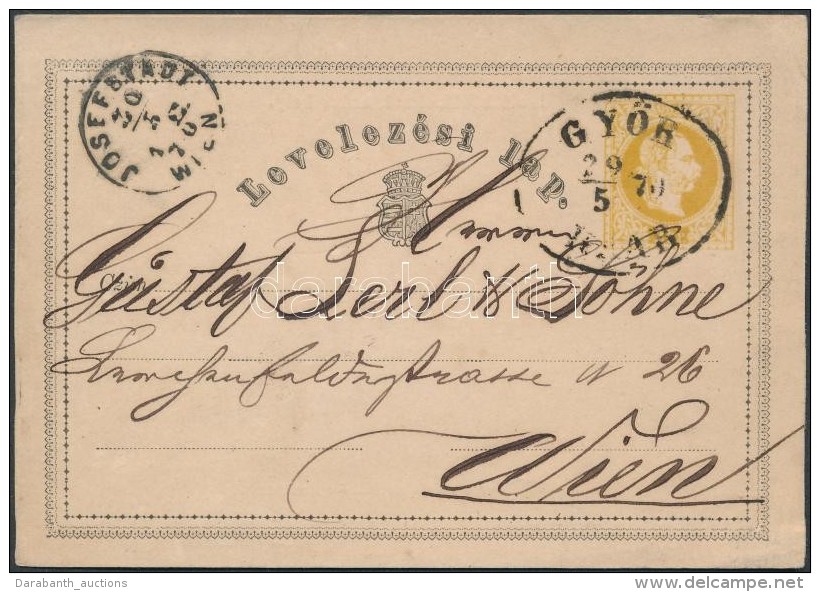 JOSEFSTADT
WIEN
30
5
70
GYŐR
29
5
70
RAAB
Levelezési lap.
Herren
Gustaf Lerl & Söhne
Lerchenfelderstrasse N 26
Wien
darabanth
Darabanth_auctions
delcampe.net